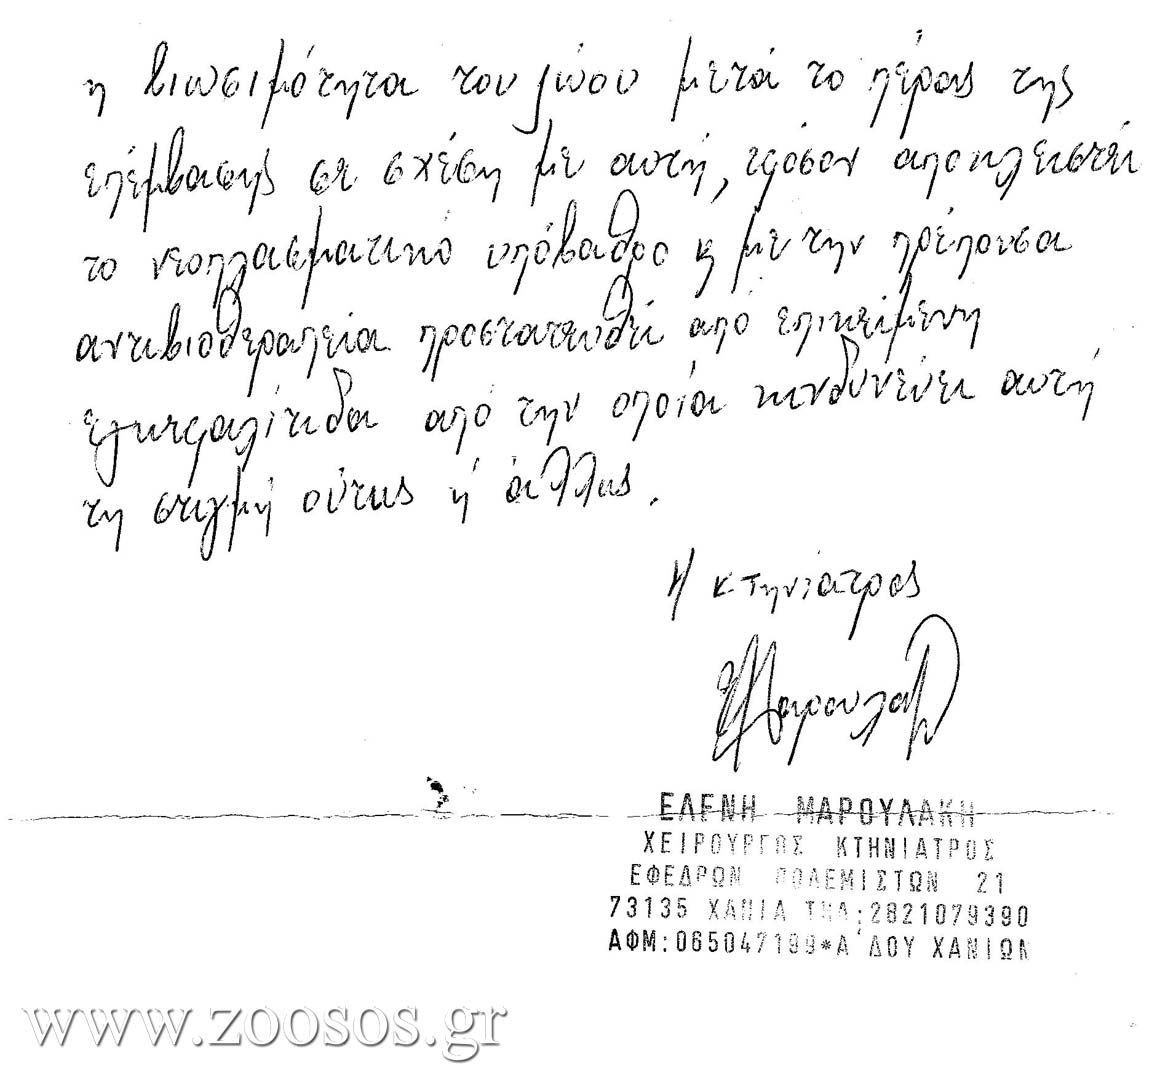 η βιωσιμότητα του ζώου μετά το πέρας της
επέμβασης σε σχέση με αυτή, εφόσον αποκλειστεί
το νεοπλασματικό υπόβαθρο κ με την πρέπουσα
αντιβιοθεραπεία προστατευθεί από επικείμενη
εγκεφαλίτιδα από την οποία κινδυνεύει αυτή
τη στιγμή ούτως ή άλλως.
Η κτηνίατρος
ΕΛΕΝΗ ΜΑΡΟΥΛΑΚΗ
ΧΕΙΡΟΥΡΓΟΣ ΚΤΗΝΙΑΤΡΟΣ
ΕΦΕΔΡΩΝ ΠΟΛΕΜΙΣΤΩΝ 21
73135 ΧΑΝΙΑ ΤΗΛ:2821079390
ΑΦΜ:065047199*Α΄ΔΟΥ ΧΑΝΙΩΝ
www.zoosos.gr